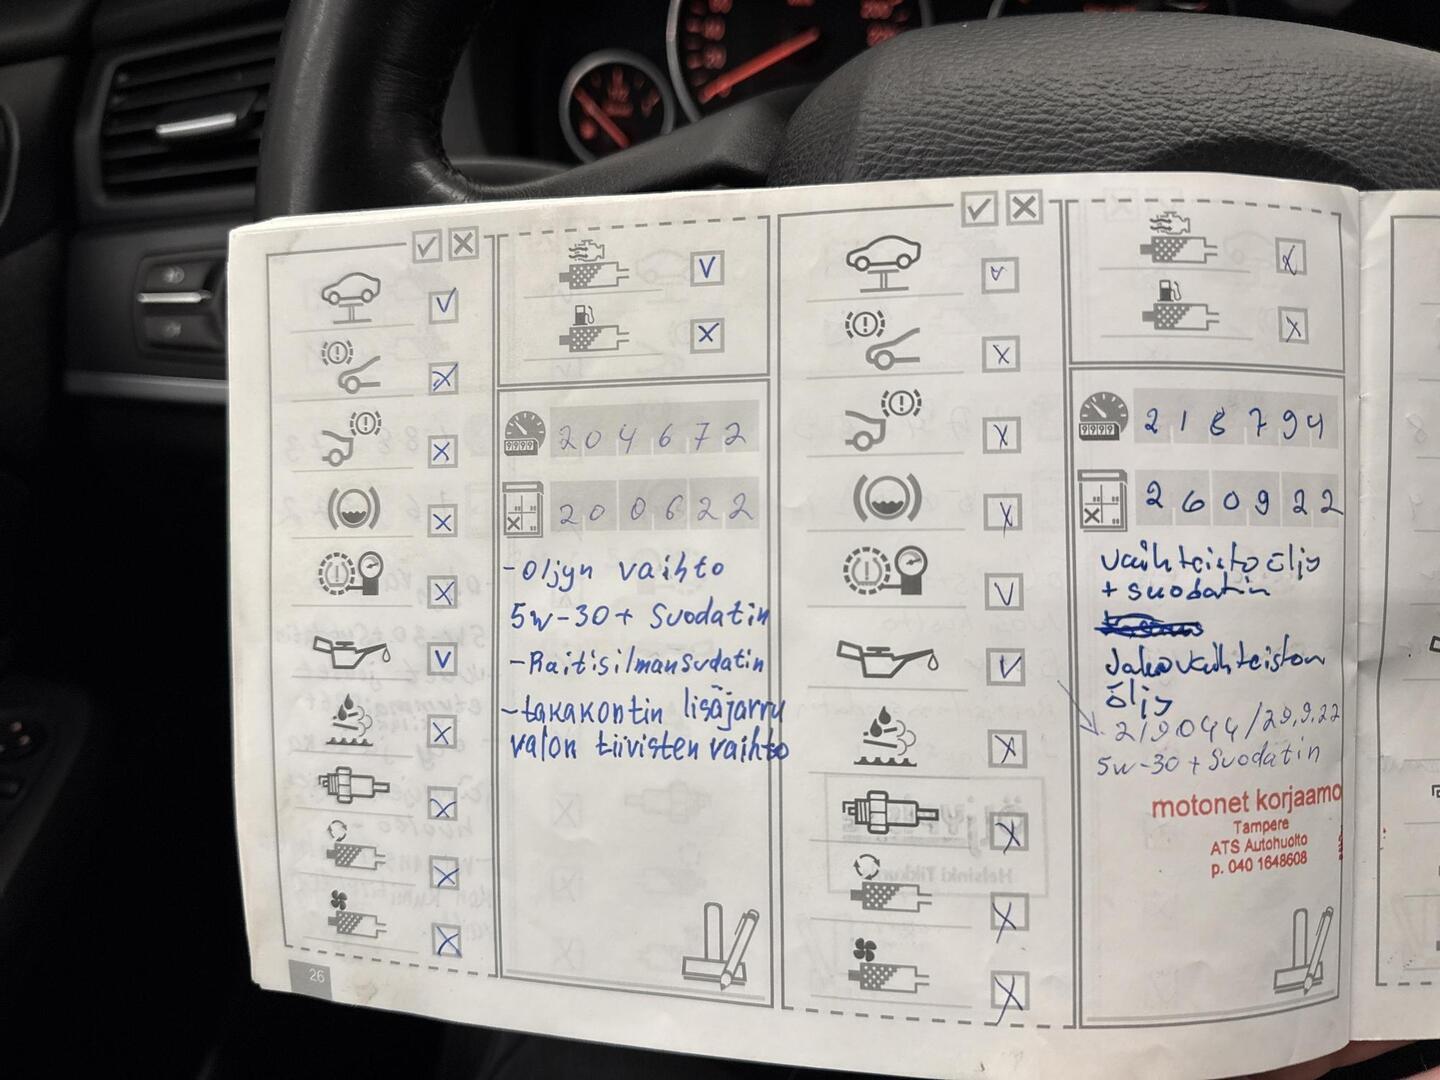 204672
200622
-Oljyn vaihto
5w-30+ Suodatin
-Raitisilmansudatin
-takakontin lisäjarru
valon tiivisten vaihto
26
218794
260922
vaihteisto öljy
+ suodatin
Jakovaihteiston
öljy
219044/29.9.22
5w-30+Suodatin
motonet korjaamo
Tampere
ATS Autohuolto
p. 040 1648608